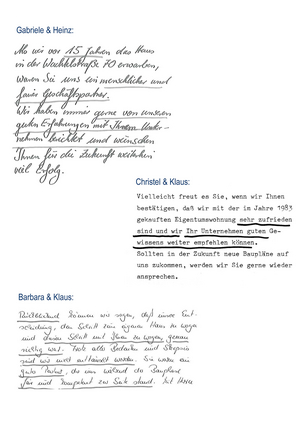 Gabriele & Heinz:
Als wir vor 15 Jahren das Haus
in der Wachtelstraße 70 erwarben,
waren Sie uns ein menschlicher und
fairer Geschäftspartner.
Wir haben immer gerne von unseren
guten Erfahrungen mit Ihrem Unter-
nehmen berichtet und wünschen
Ihnen für die Zukunft weiterhin
viel Erfolg.
Christel & Klaus:
Vielleicht freut es Sie, wenn wir Ihnen
bestätigen, daß wir mit der im Jahre 1983
gekauften Eigentumswohnung sehr zufrieden
sind und wir Ihr Unternehmen guten Ge-
wissens weiter empfehlen können.
Sollten in der Zukunft neue Baupläne auf
uns zukommen, werden wir Sie gerne wieder
ansprechen.
Barbara & Klaus:
Rückblickend können wir sagen, daß unsere Ent-
scheidung, den Schritt zum eigenen Haus zu wagen
und diesen Schritt mit Ihnen zu wagen, genau
richtig war. Trotz aller Bedenken und Skepsis
sind wir nicht enttäuscht worden. Sie waren ein
guter Partner, der uns während der Bauphase
fair und kompetent zur Seite stand. Mit Ihrer